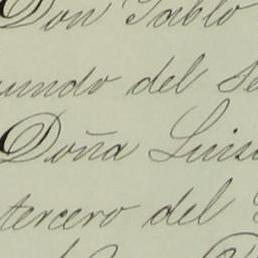 Don Pablo
undo del Se
Doña Luis
tercero del